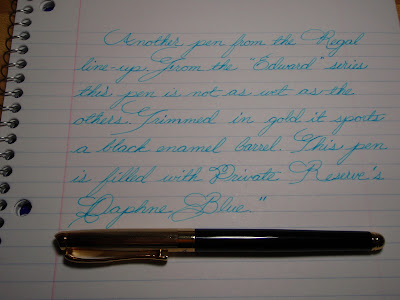 Another pen from the Regal
line-up. From the "Edward" series
this pen is not as wet as the
others. Trimmed in gold it sports
a black enamel barrel. This pen
is filled with Private Reserve's
Daphne Blue"